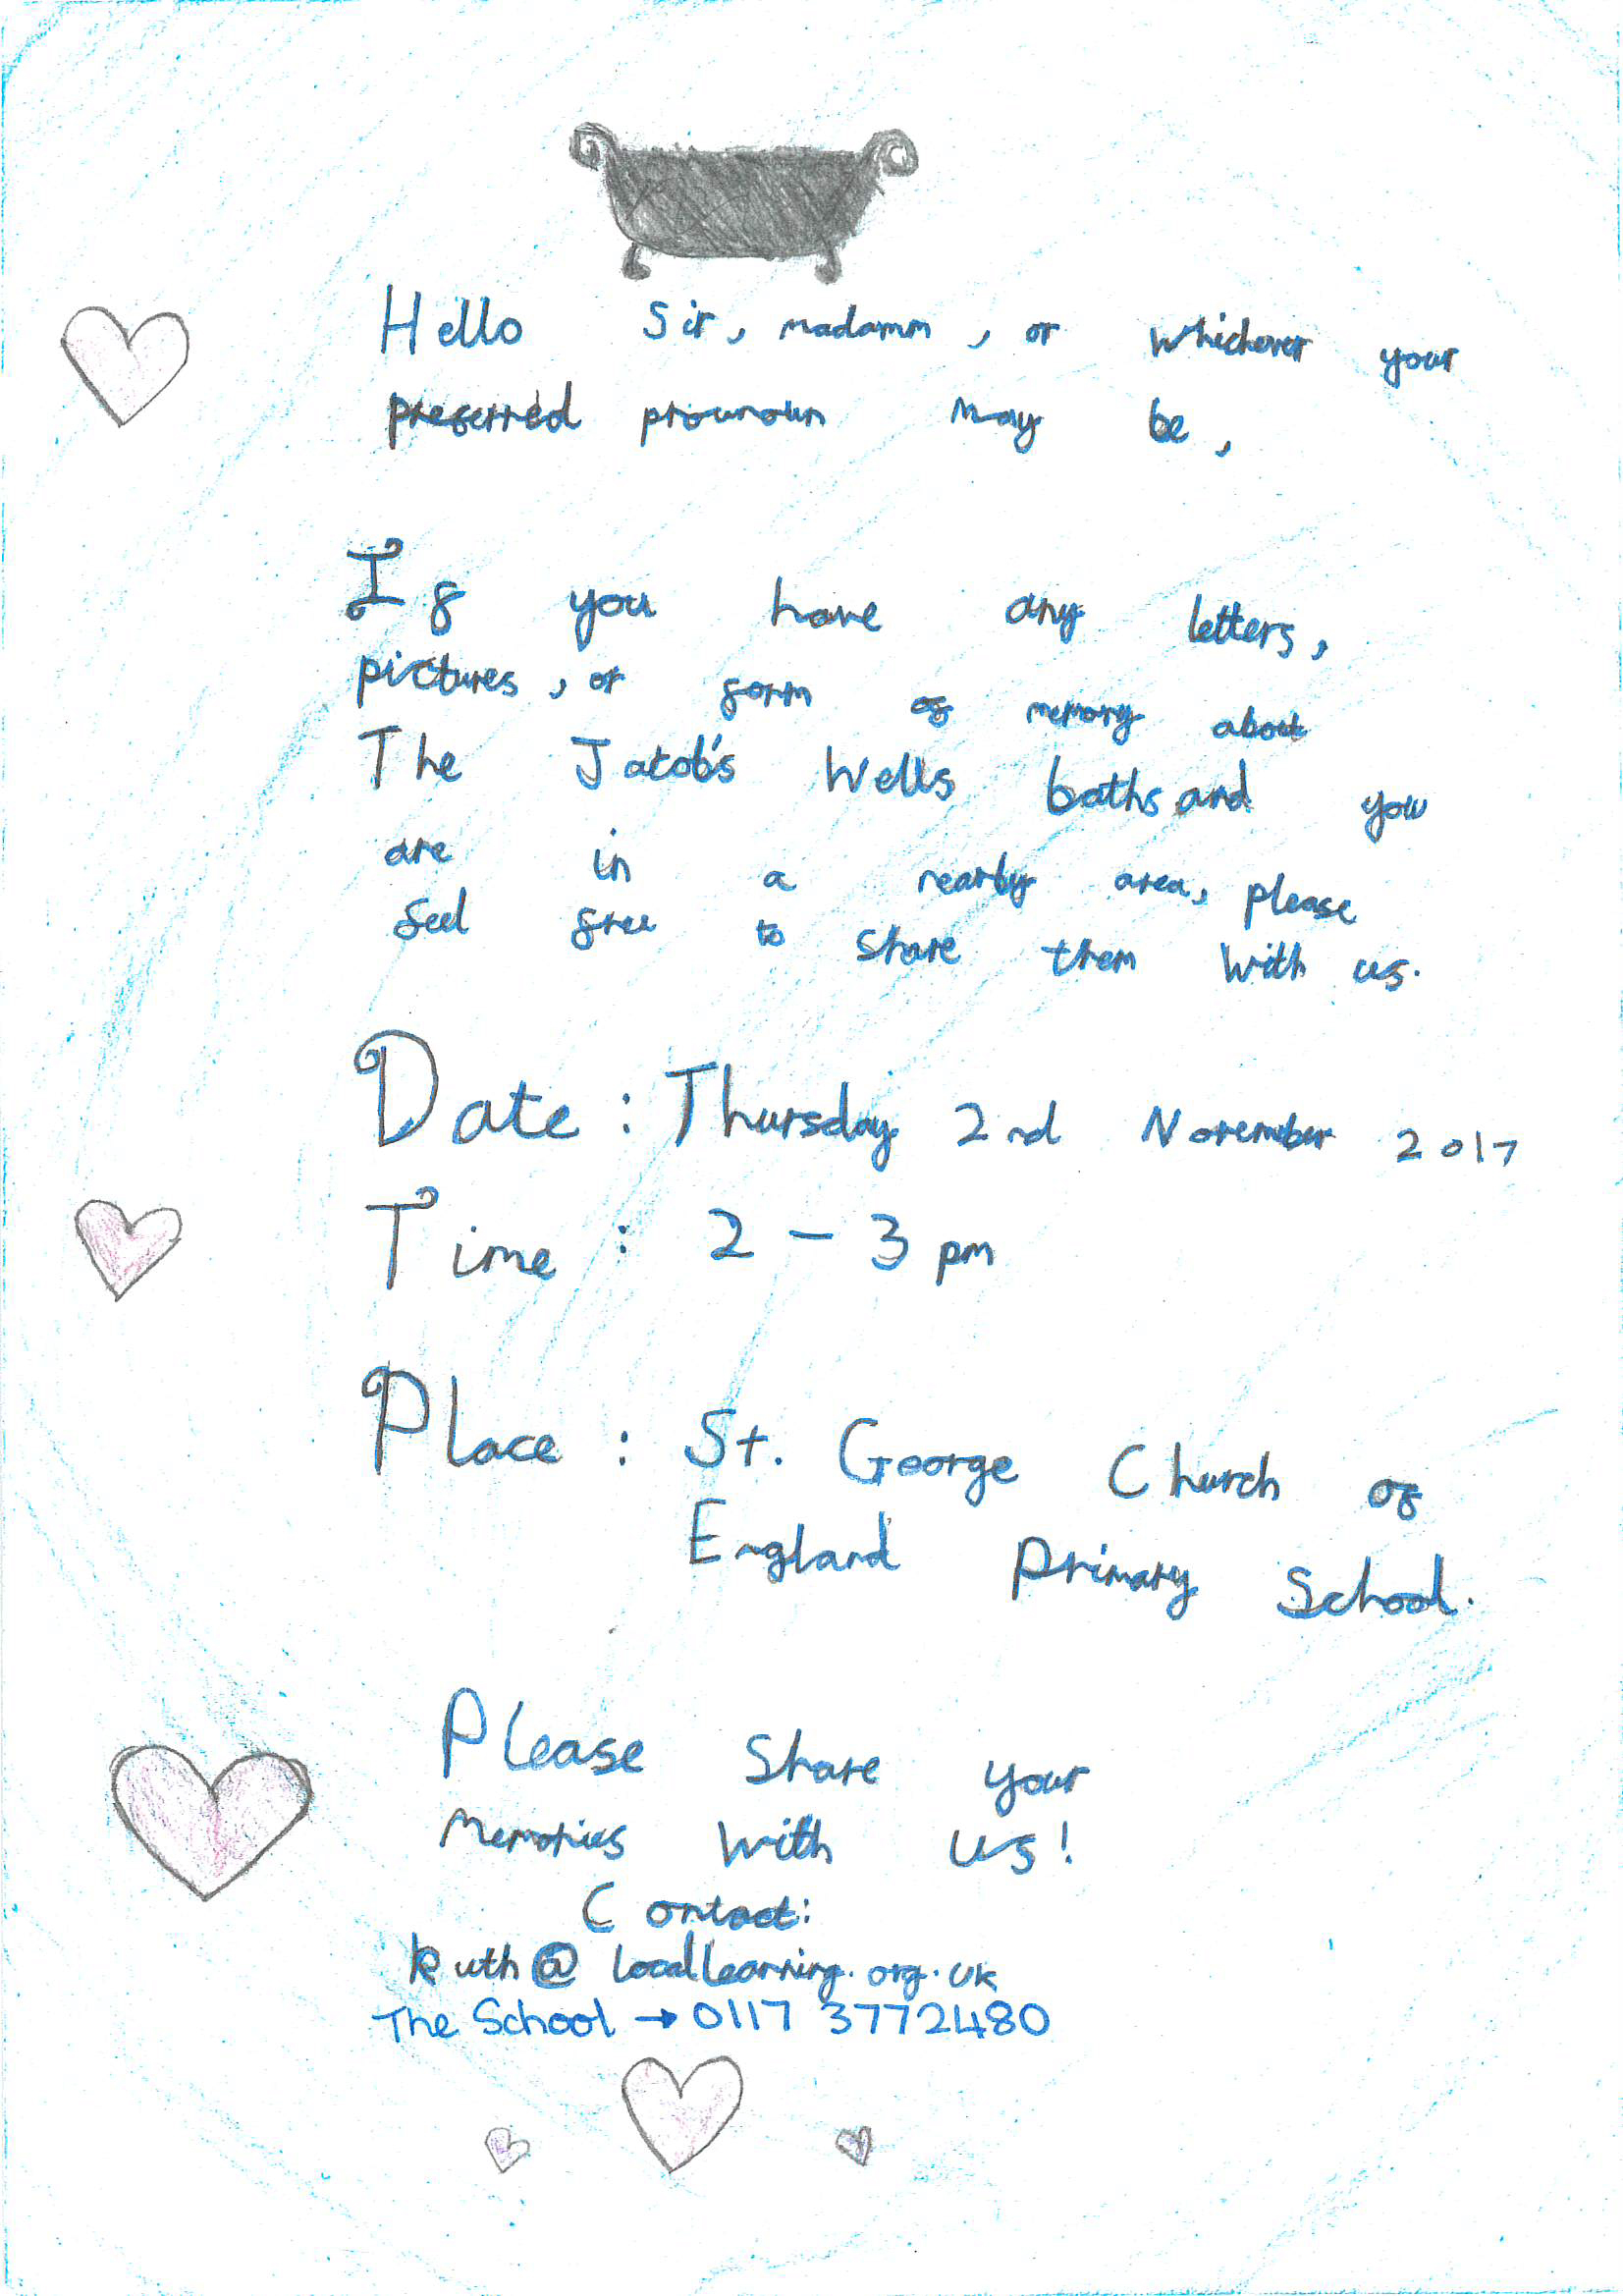 Hello Sir, madamm, or whichever your
preferred prounoun may be,
If you have any letters,
pictures, or form of memory about
The Jacob's Wells baths and you
are in a nearby area, please
feel free to share them with us.
Date : Thursday 2nd November 2017
Time : 2 - 3 pm
Place : St. George Church of
England Primary School.
Please Share your
memories with us!
Contact:
Ruth@locallearning.org.uk
The School → 0117 3772480